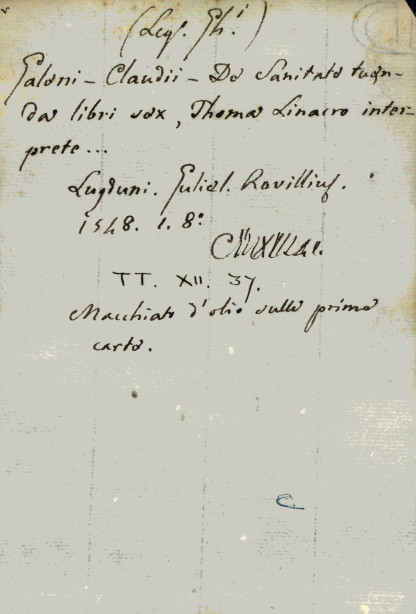 (Leg. Gh.)
Galeni – Claudii – De Sanitate tuen-
da libri sex, Thoma Linacro inter-
prete...
Lugduni. Guliel. Rovillius.
1548. 1. 8:
TT. XII. 37.
Macchiato d'olio sulle prime
carte.
C.